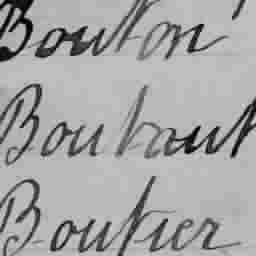 Bouton
Boutaut
Boutier